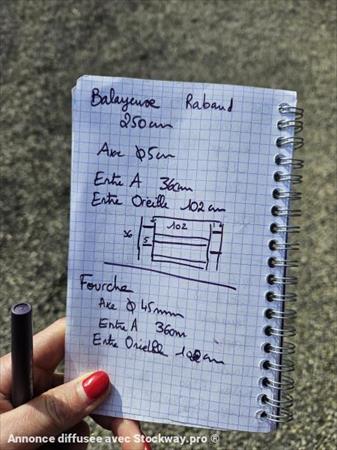 Balayeuse Rabaud
250cm
Axe φ5cm
Entre A 36cm
Entre Oreille 102cm
102
36 5
Fourche
Axe φ 45mm
Entre A 36cm
Entre Oreille cm
Annonce diffusée avec Stockway.pro ®